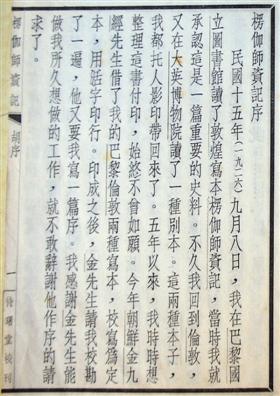 楞伽師資記序
民國十五年(一九二六)九月八日，我在巴黎國
立圖書館讀了敦煌寫本楞伽師資記，當時我就
承認這是一篇重要的史料。不久我回到倫敦，
又在大英博物院讀了一種別本。這兩種本子，
我都托人影印帶回來了。五年以來，我時時想
整理這書付印，始終不曾如願。今年朝鮮金九
經先生借了我的巴黎倫敦兩種寫本，校寫為定
本，用活字印行。印成之後，金先生請我校勘
了一遍，他又要我寫一篇序。我感謝金先生能
做我所久想做的工作，就不敢辭謝他作序的請
求了。
楞伽師資記 胡序
一
待曙堂校刊